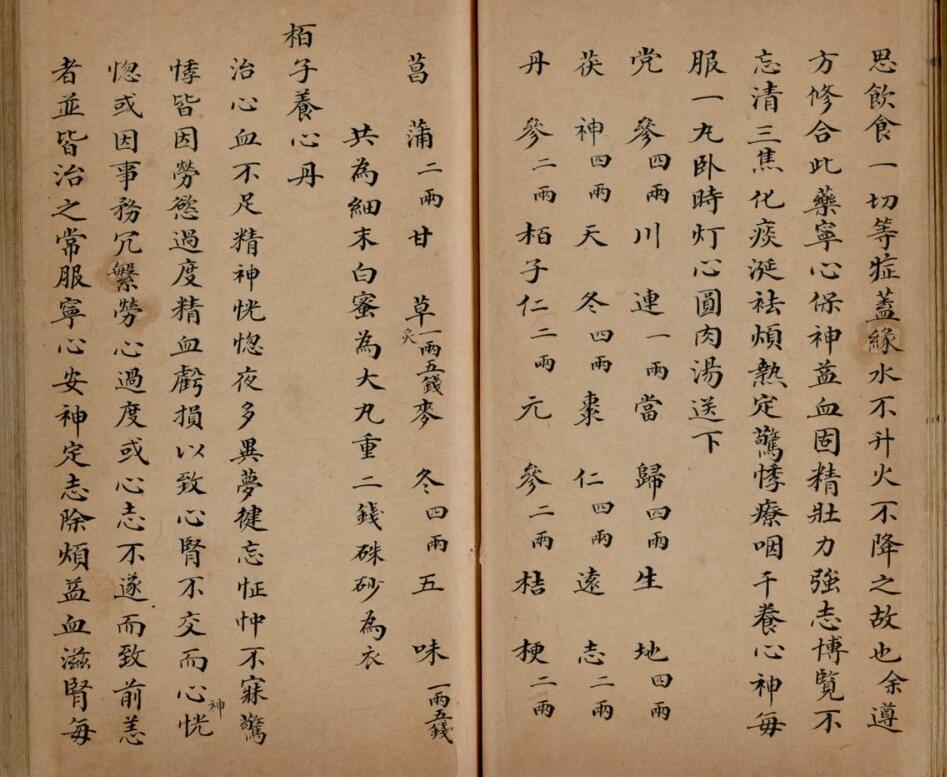 思飲食一切等症蓋緣水不升火不降之故也余遵
方修合此藥寧心保神益血固精壯力強志博覽不
忘清三焦化痰涎袪煩熱定驚悸療咽干養心神每
服一丸臥時灯心圓肉湯送下
党參四兩川連一兩當歸四兩生地四兩
茯神四兩天冬四兩棗仁四兩遠志二兩
丹參二兩栢子仁二兩元參二兩桔梗二兩
菖蒲二兩甘草一兩五錢炙麥冬四兩五味一兩五錢
共為細末白蜜為大丸重二錢硃砂為衣
栢子養心丹
治心血不足精神恍惚夜多異夢健忘怔忡不寐驚
悸皆因勞慾過度精血虧損以致心腎不交而心神恍
惚或因事務冗繁勞心過度或心志不遂而致前恙
者並皆治之常服寧心安神定志除煩益血滋腎每